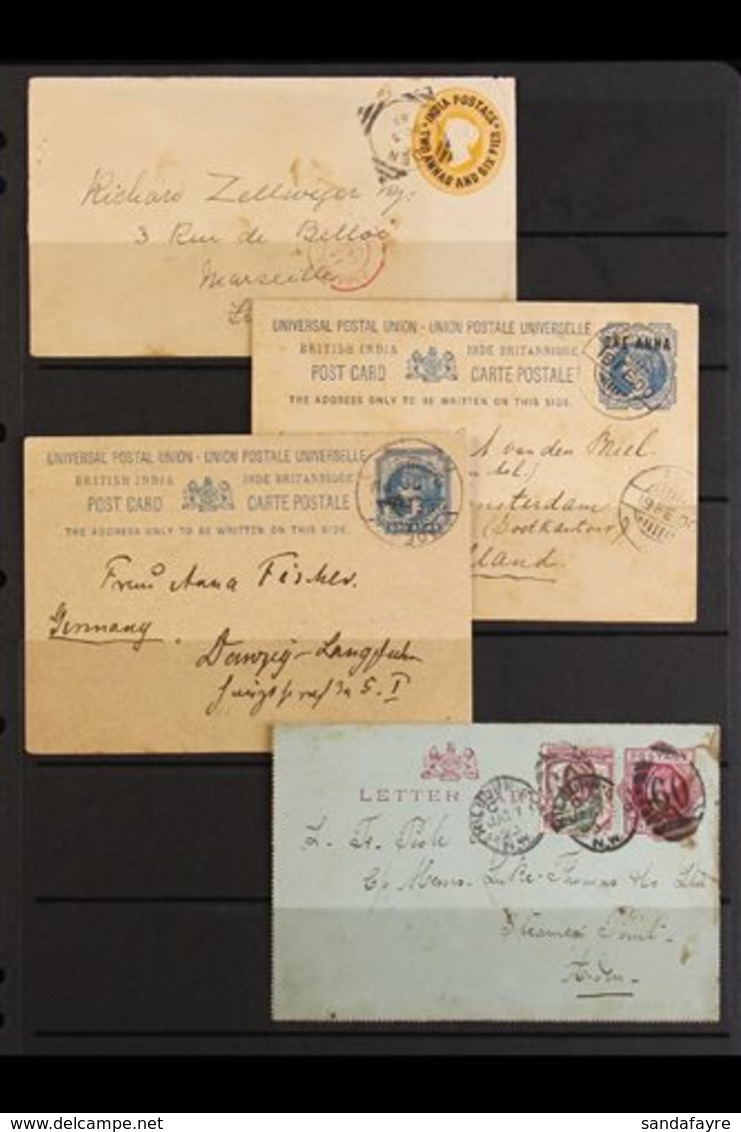 INDIA POSTAGE
TWO ANNAS AND SIX PIES
Richard Zellweger Esq.
3 Rue de Belloi
Marseille
UNIVERSAL POSTAL UNION - UNION POSTALE UNIVERSELLE
BRITISH INDIA INDE BRITANNIQUE
POST CARD CARTE POSTALE
THE ADDRESS ONLY TO BE WRITTEN ON THIS SIDE.
ONE ANNA
t van den Briel
del.)
msterdam
(Postkantoor)
lland
UNIVERSAL POSTAL UNION - UNION POSTALE UNIVERSELLE
BRITISH INDIA INDE BRITANNIQUE
POST CARD CARTE POSTALE
THE ADDRESS ONLY TO BE WRITTEN ON THIS SIDE.
Anna Fischer.
Germany.
Danzig-Langfuhr
5. I
LETTER
POSTAGE
N.W
N.W
C/o Messrs. Luke Thomas & Co Ltd
Steamer Point
Aden
www.delcampe.net
sandafayre